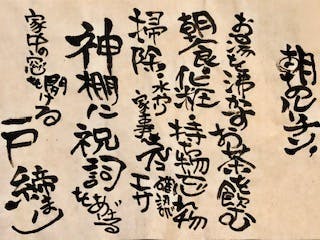 朝のルーチン
お湯を沸かす お茶を飲む
朝食 化粧・持ち物 忘れ物
確認
掃除・水やり 家事 エサ
神棚に祝詞をあげる
家中の窓を開ける 戸締まり